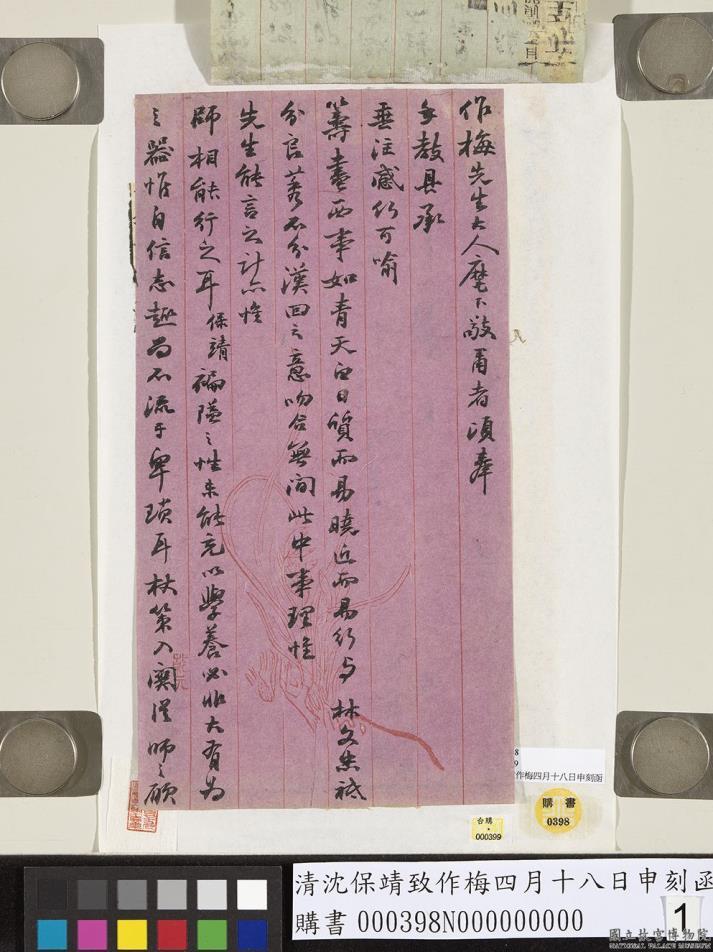 作梅先生大人麾下敬甫者頃奉
手教具承
垂注感何可喻
籌畫西事如青天白日質而易曉近而易行與 林文忠祗
分良莠不分漢回之意吻合無間此中事理惟
先生能言之計亦惟
師相能行之耳保靖褊隘之性未能充以學養必非大有為
之器惟自信志趣尚不流于卑瑣耳杖策入關從 師之願
作梅四月十八日申刻函
購書
0398
台購
000399
清沈保靖致作梅四月十八日申刻函
購書 000398N000000000
1
國立故宮博物院
NATIONAL PALACE MUSEUM